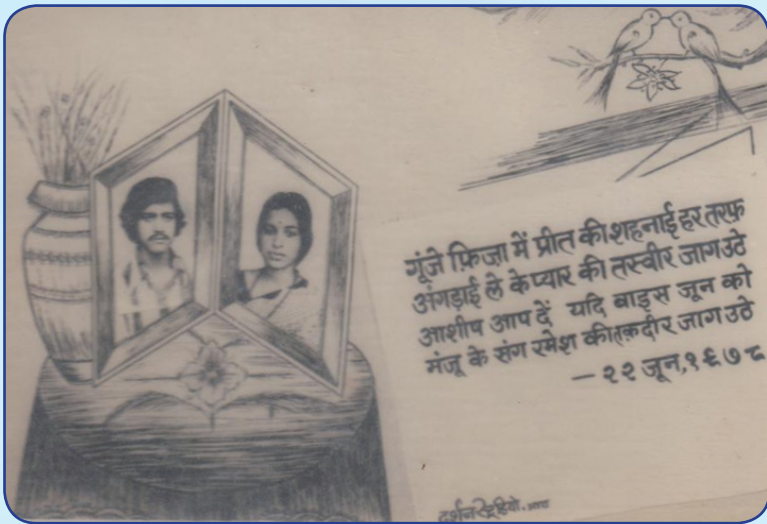 गूंजे फ़िज़ा में प्रीत की शहनाई हर तरफ़
अंगड़ाई ले के प्यार की तस्वीर जाग उठे
आशीष आप दें यदि बाइस जून को
मंजू के संग रमेश की तक़दीर जाग उठे
— २२ जून, १९७८
दर्शन स्टूडियो.